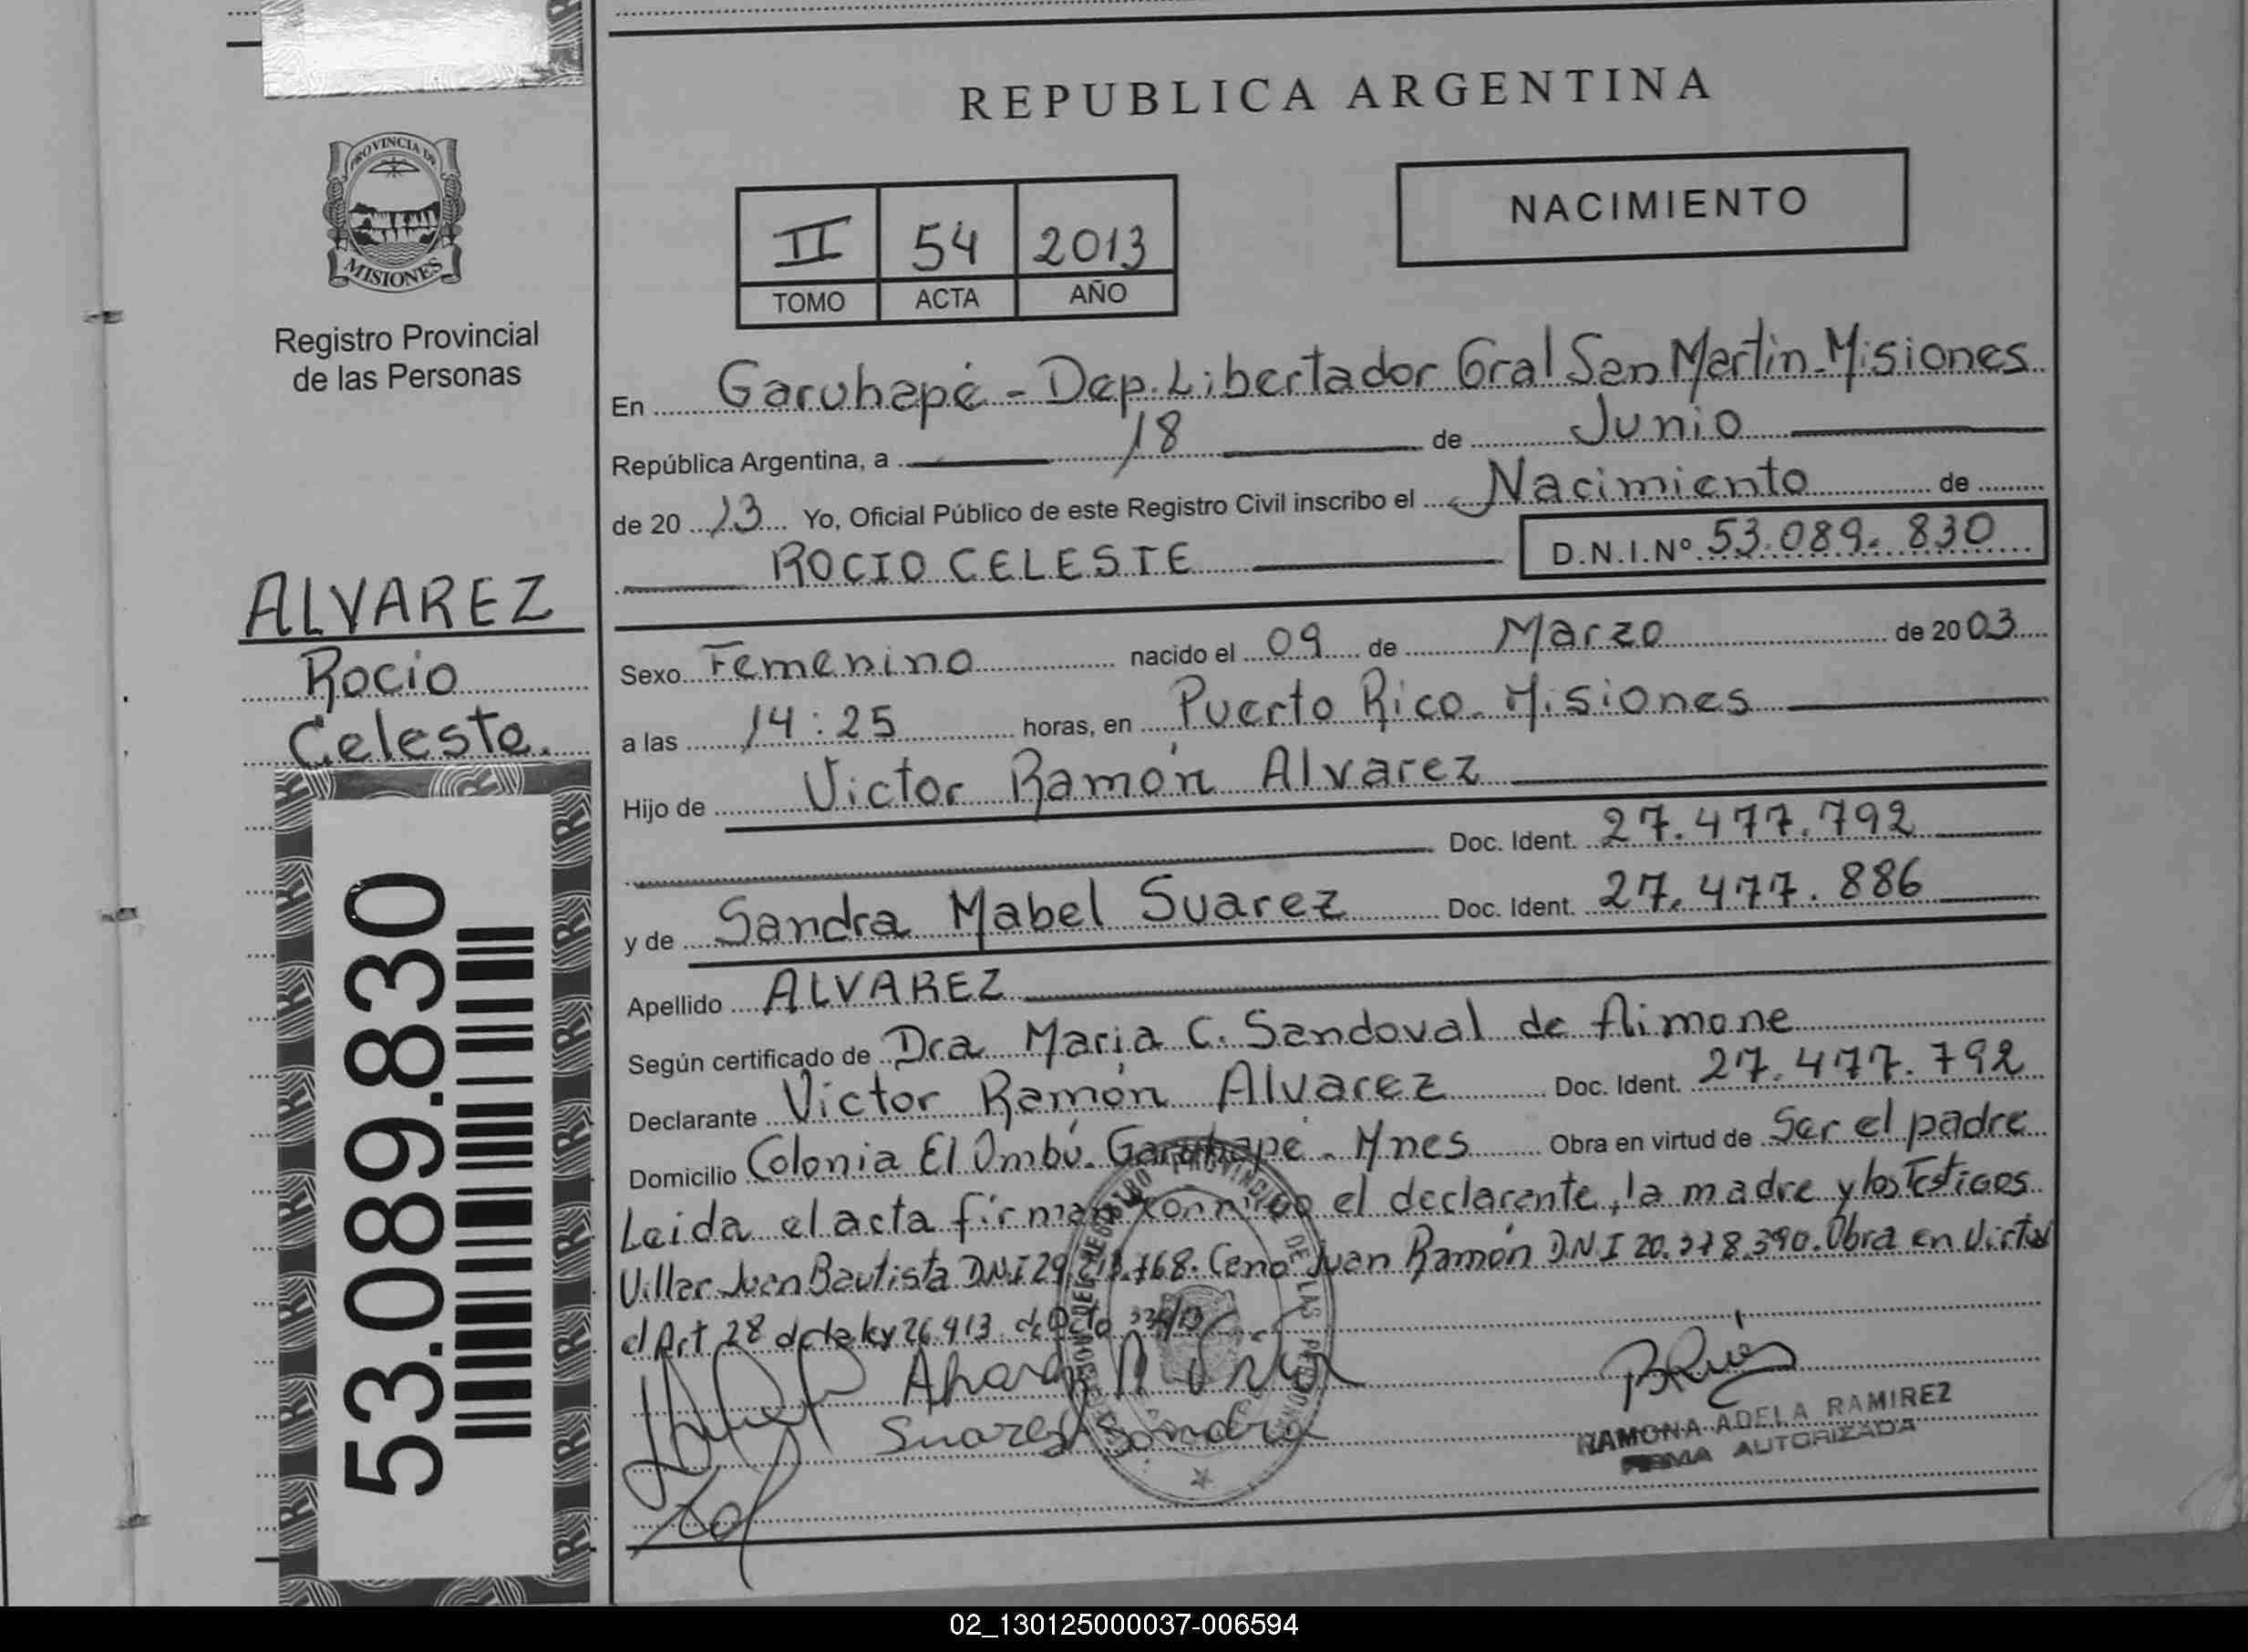 REPUBLICA ARGENTINA
PROVINCIA DE
MISIONES
Registro Provincial
de las Personas
NACIMIENTO
II 54 2013
TOMO ACTA AÑO
En Garuhapé - Dep. Libertador Gral San Martin - Misiones
República Argentina, a 18 de Junio
de 20 13 Yo, Oficial Público de este Registro Civil inscribo el Nacimiento de
ROCIO CELESTE D.N.I.Nº 53.089.830
ALVAREZ
Rocio
Celeste.
53.089.830
Sexo Femenino nacido el 09 de Marzo de 20 03
a las 14:25 horas, en Puerto Rico - Misiones
Hijo de Victor Ramón Alvarez
Doc. Ident. 27.477.792
y de Sandra Mabel Suarez Doc. Ident. 27.477.886
Apellido ALVAREZ
Según certificado de Dra Maria C. Sandoval de Aimone
Declarante Victor Ramón Alvarez Doc. Ident. 27.477.792
Domicilio Colonia El Ombú. Garuhapé - Mnes Obra en virtud de Ser el padre
Leida el acta firman conmigo el declarante, la madre y los Testigos
Villar Juan Bautista D.N.I 29. .768. Juan Ramón D.N.I 20.378.390. Obra en Virtud
el Art 28 de la ley 26.413
Suarez Sandra
RAMONA ADELA RAMIREZ
FIRMA AUTORIZADA
02_130125000037-006594